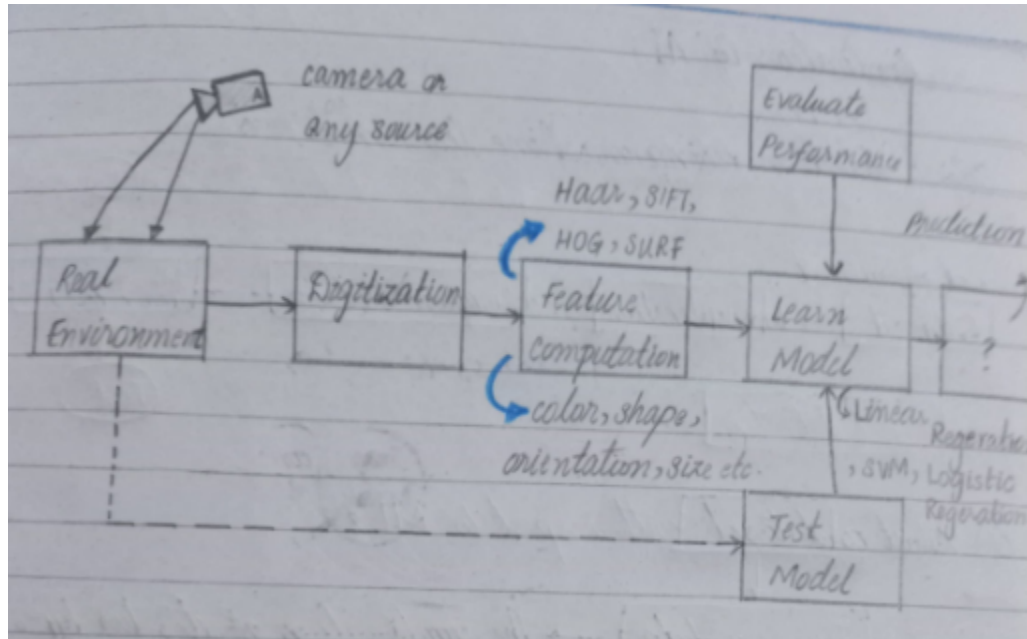 camera or
any source
A
Evaluate
Performance
Haar, SIFT,
HOG, SURF
Prediction
Real
Environment
Digitization
Feature
Computation
Learn
Model
?
color, shape,
orientation, size etc.
Linear
Regeration
, SVM, Logistic
Regeration
Test
Model